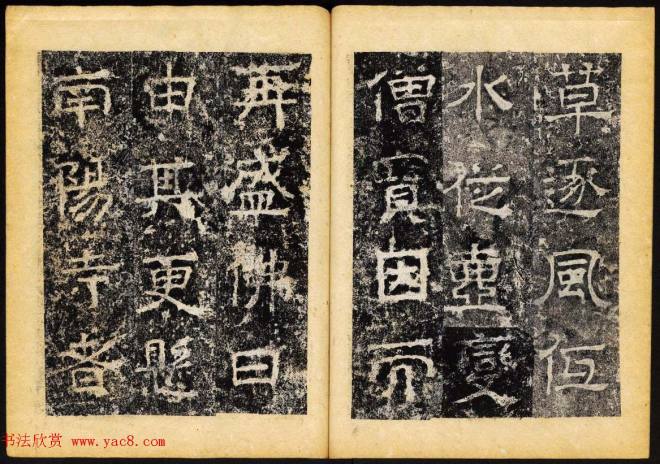 草逐風伍
水從重變
僧寳因而
再盛佛日
由其更懸
南陽寺者
书法欣赏 www.yac8.com